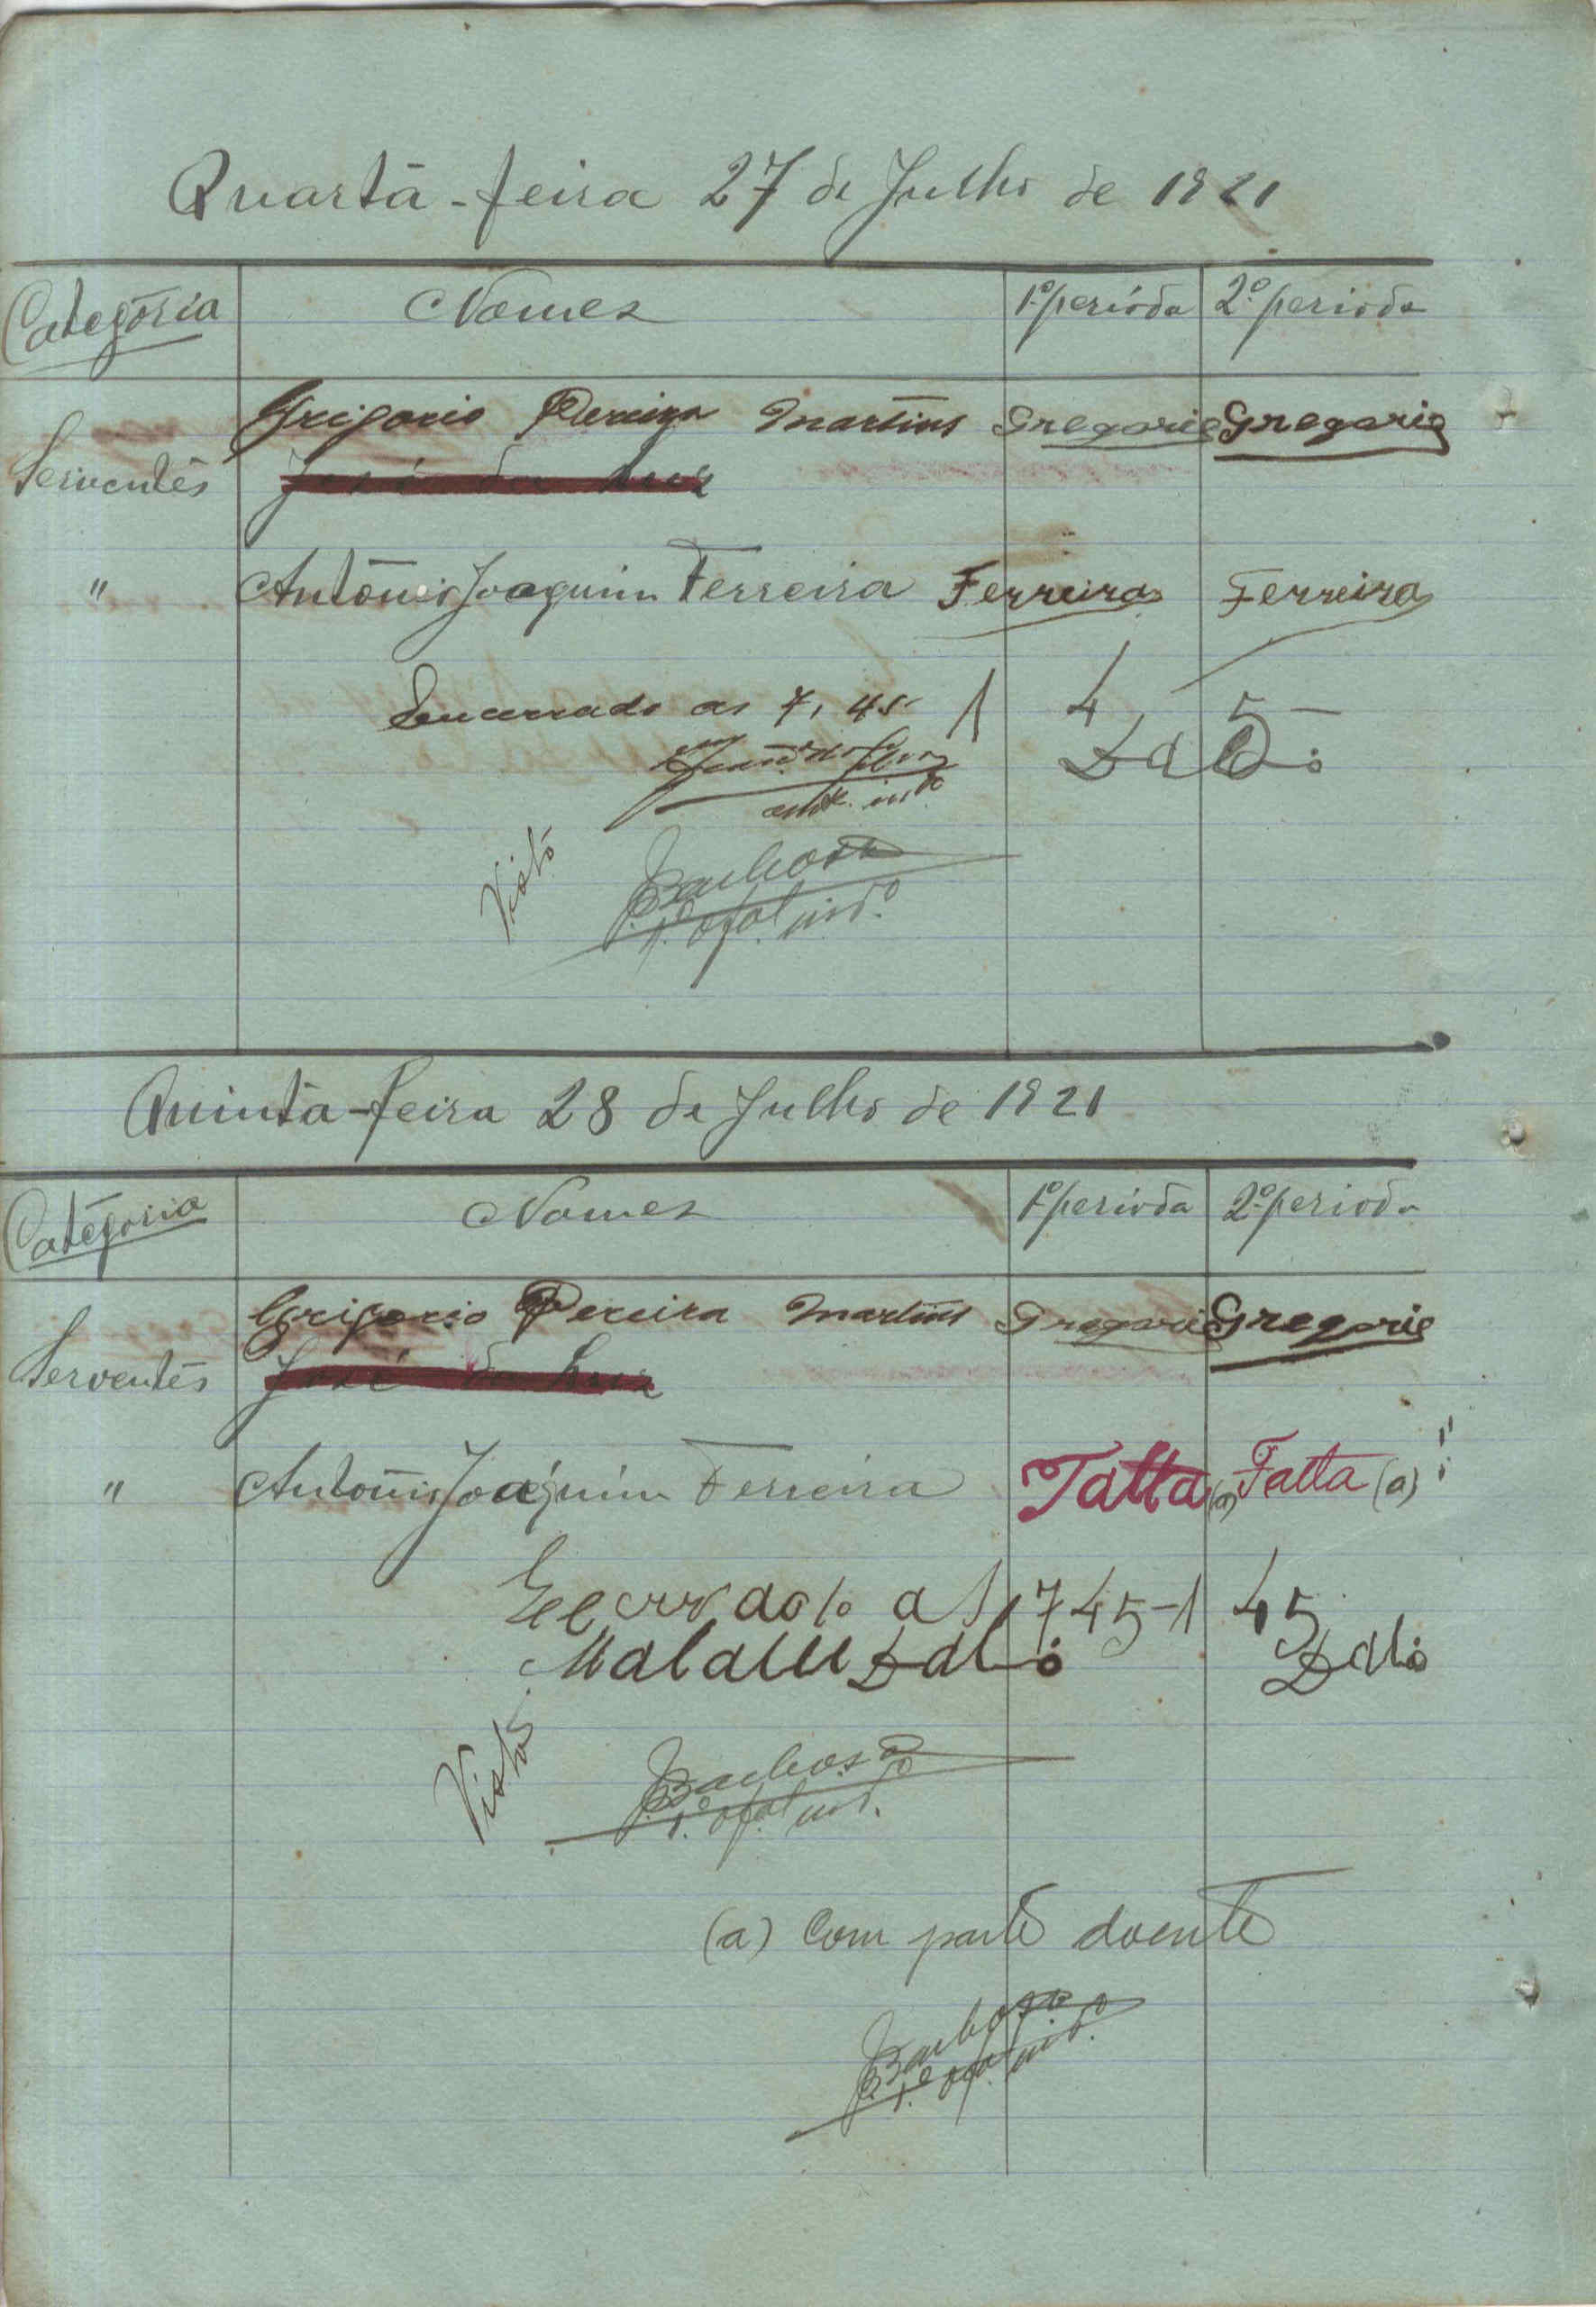 Quarta-feira 27 de Julho de 1921
Categoria Nomes 1º periodo 2º periodo
Grigorio Pereira Martins Gregorio Gregorio
Serventes José da Luz
" Antonio Joaquim Ferreira Ferreira Ferreira
Encerrado as 7,45 1 45-
Visto Barbosa
1º ofal indº
Quinta-feira 28 de Julho de 1921
Categoria Nomes 1º periodo 2º periodo
Grigorio Pereira Martins Gregorio Gregorio
Serventes José da Luz
" Antonio Joaquim Ferreira Falta (a) Falta (a)
as 745-1 45
Visto Barbosa
1º ofal indº
(a) Com parte doente
Barbosa
1º ofal indº